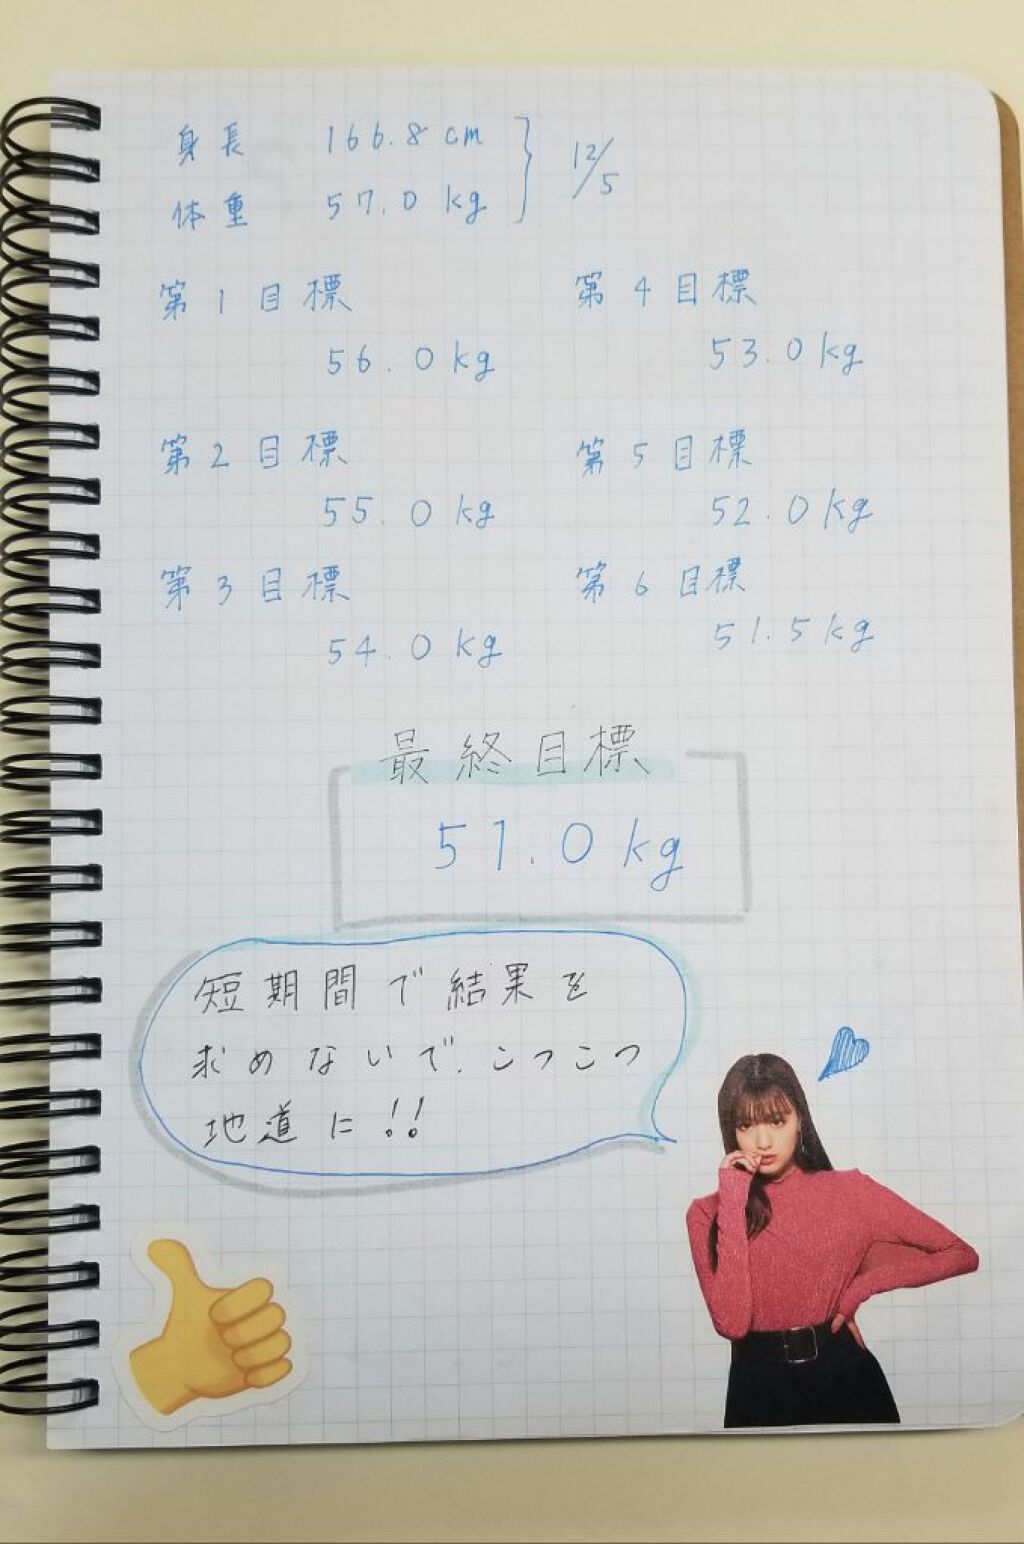 身長 166.8cm
体重 57.0kg
12/5
第1目標
56.0kg
第2目標
55.0kg
第3目標
54.0kg
第4目標
53.0kg
第5目標
52.0kg
第6目標
51.5kg
最終目標
51.0kg
短期間で結果を
求めないで、こつこつ
地道に!!